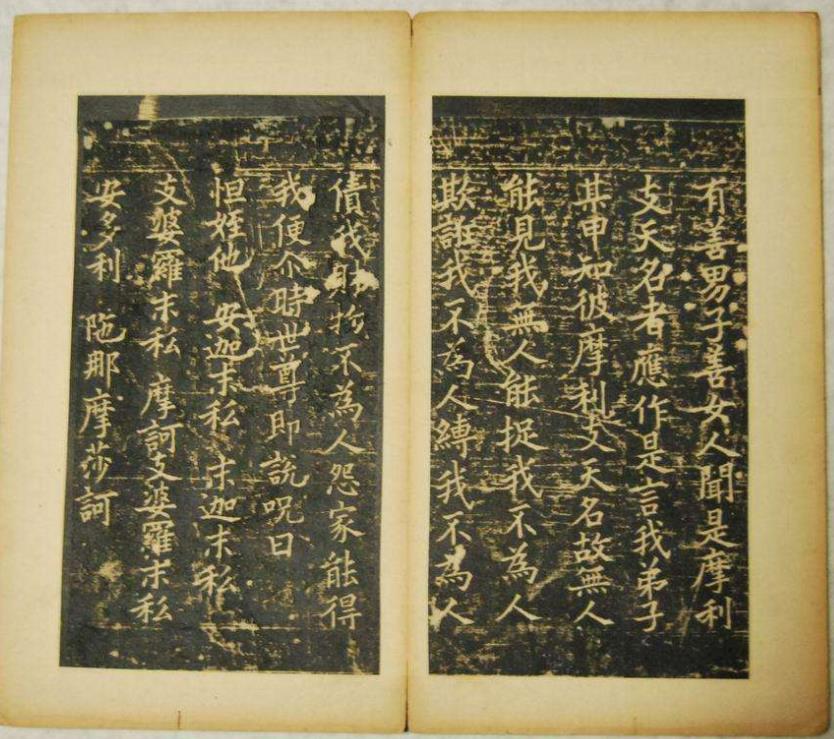 有善男子善女人聞是摩利
支天名者應作是言我弟子
其甲知彼摩利支天名故無人
能見我無人能捉我不為人
欺誑我不為人縛我不為人
債我財物不為人怨家能得
我便尒時世尊即說呪曰
怛姪他 安迦末私 末迦末私
支婆羅末私 摩訶支婆羅末私
安多利 陁那摩莎訶